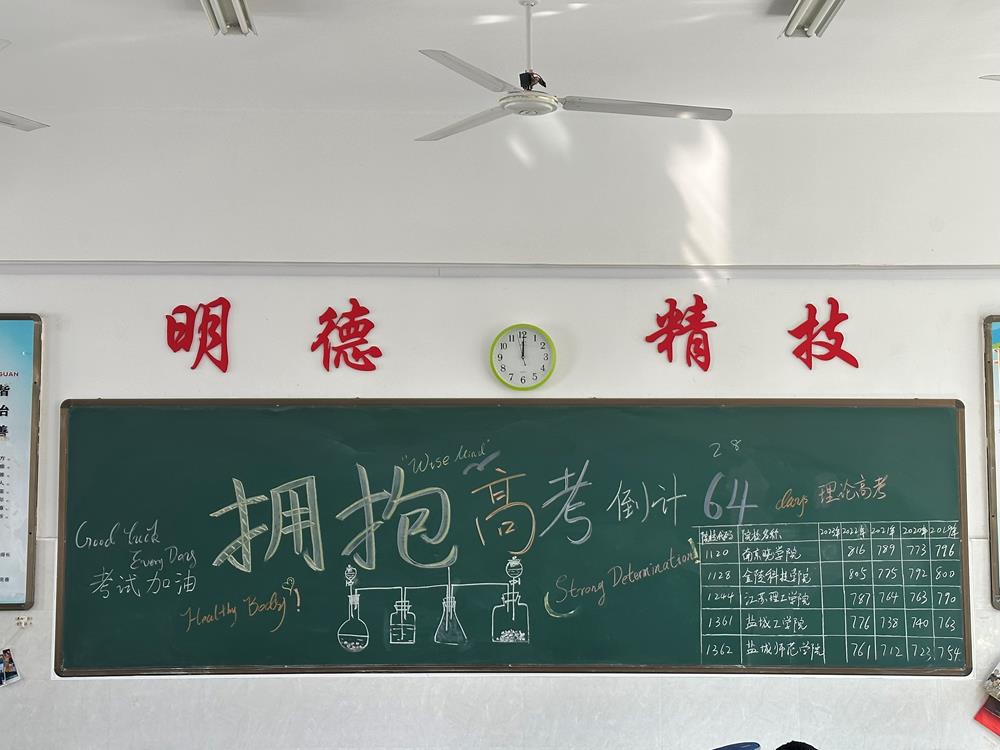 明德 精技
12 1 2 3 4 5 6 7 8 9 10 11
GUAN
"Wise Mind"
28
拥抱高考 倒计 64 days 理论高考
Good luck
Every Day
考试加油
Healthy Body!
Strong Determination!
院校代码 院校名称 2023年 2022年 2021年 2020年 2019年
1120 南京晓庄学院 816 789 773 796
1128 金陵科技学院 805 775 792 800
1244 江苏理工学院 787 764 763 790
1361 盐城工学院 776 738 740 763
1362 盐城师范学院 761 712 723 754